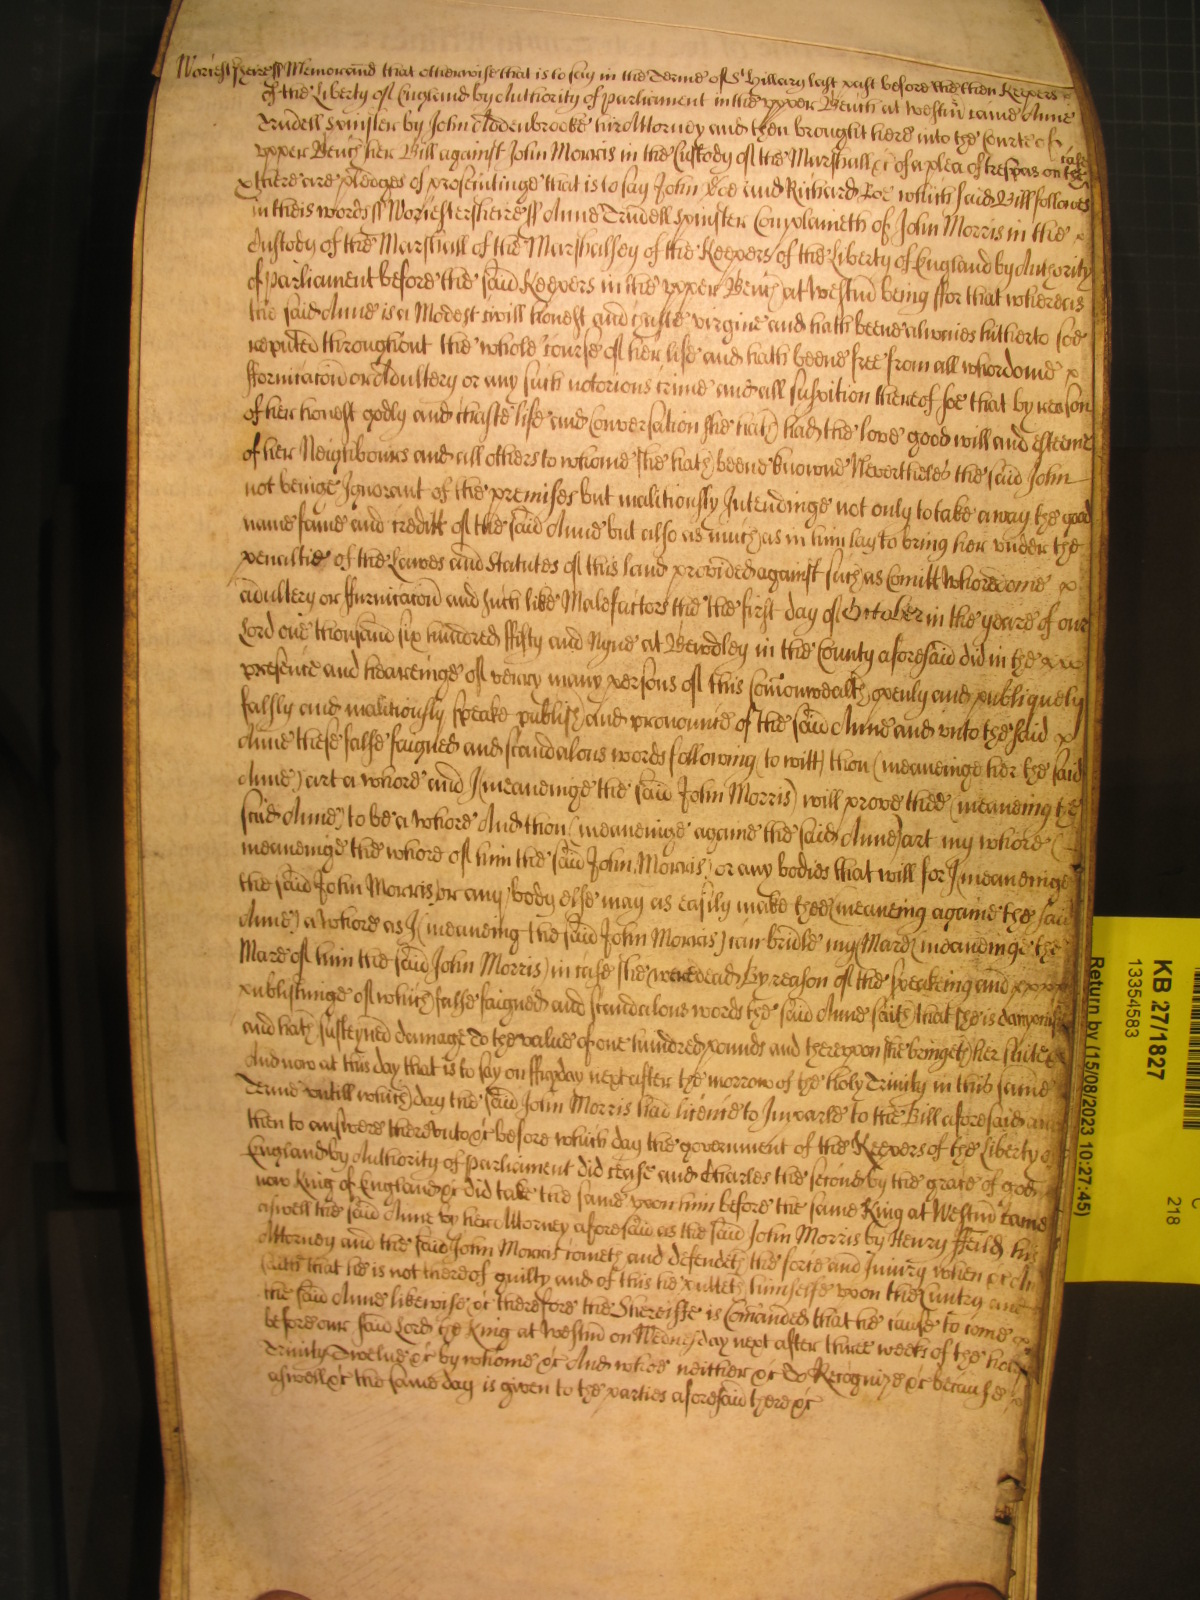 Worcestsheire ss Memorand that otherwise that is to say in the Terme of St Hillary last past before the then Keepers
of the Liberty of England by Authority of Parliament in the upper Bench at Westm came Anne
Trudell Spinster by John Addenbrooke her Attorney and then brought here into the Courte of
upper Bench her Bill against John Morris in the Custody of the Marshall &c of a plea of trespas on the case
& there are pledges of prosecutinge that is to say John Doe and Richard Roe which said Bill followes
in theis words ss Worcestersheire ss Anne Trudell Spinster Complaineth of John Morris in the
Custody of the Marshall of the Marshalsey of the Keepers of the Liberty of England by Authority
of Parliament before the said Keepers in the upper Bench at Westm being ffor that whereas
the said Anne is a Modest civill honest and chaste virgine and hath beene alwaies hitherto soe
reputed throughout the whole course of her life and hath beene free from all whordome
ffornicacon or Adultery or any such notorious crime and all suspition thereof soe that by reason
of her honest godly and chaste life and Conversation she hath had the love good will and esteeme
of her Neighbours and all others to whome she hath beene knowne Neverthelés the said John
not beinge Ignorant of the premises but malitiously Intendinge not only to take away the good
name fame and creditt of the said Anne but also as much as in him lay to bring her under the
penaltie of the Lawes and Statutes of this land provided against such as Comitt Whoredome
adultery or ffurnicacon and such like Malefactors the the first day of October in the yeare of our
Lord one thousand six hundred ffifty and Nyne at Bewdley in the County aforesaid did in the
presence and heareinge of verry many persons of this Comonwealth openly and publiquely
falsly and malitiously speake publish and pronounce of the said Anne and unto the said
Anne these false faigned and scandalous words following (to witt) thou (meaneinge her the said
Anne) art a whore and I (meaneinge the said John Morris) will prove thee (meaneing the
said Anne) to be a whore And thou (meaneinge againe the said Anne) art my whore (
meaneinge the whore of him the said John Morris) or any bodies that will for I (meaneinge
the said John Morris) or any body else may as easily make thee (meaneing againe the said
Anne) a whore as I (meaneing the said John Morris) can bridle my Mare (meaneinge the
Mare of him the said John Morris) in case she were dead By reason of the speakeing and
publishinge of which false faigned and scandalous words the said Anne saith that she is dampnified
and hath susteyned damage To the value of one hundred pounds and thereupon she bringeth her suite &c
And now at this day that is to say on ffryday next after the morrow of the holy Trinity in this same
Terme untill which day the said John Morris had licence to Imparle to the Bill aforesaid and
then to answere thereunto &c before which day the government of the Keepers of the Liberty of
England by Authority of Parliament did cease and Charles the second by the grace of god
now King of England &c did take the same upon him before the same King at Westm came
aswell the said Anne by her Attorney aforesaid as the said John Morris by Henry ffeild his
Attorney and the said John Morris cometh and defendeth the force and Injury when &c And
saith that he is not thereof guilty and of this he putteth himselfe upon the Cuntry and
the said Anne likewise &c therefore the Shereiffe is Comanded that he cause to come
before our said Lord the King at Westm on Wednesday next after three weeks of the holy
Trinity Twelve &c by whome &c And whoe neither &c To Recognize &c because
aswell &c the same day is given to the parties aforesaid here &c
KB 27/1827
13354583
218
Return by (15/08/2023 10:27:45)